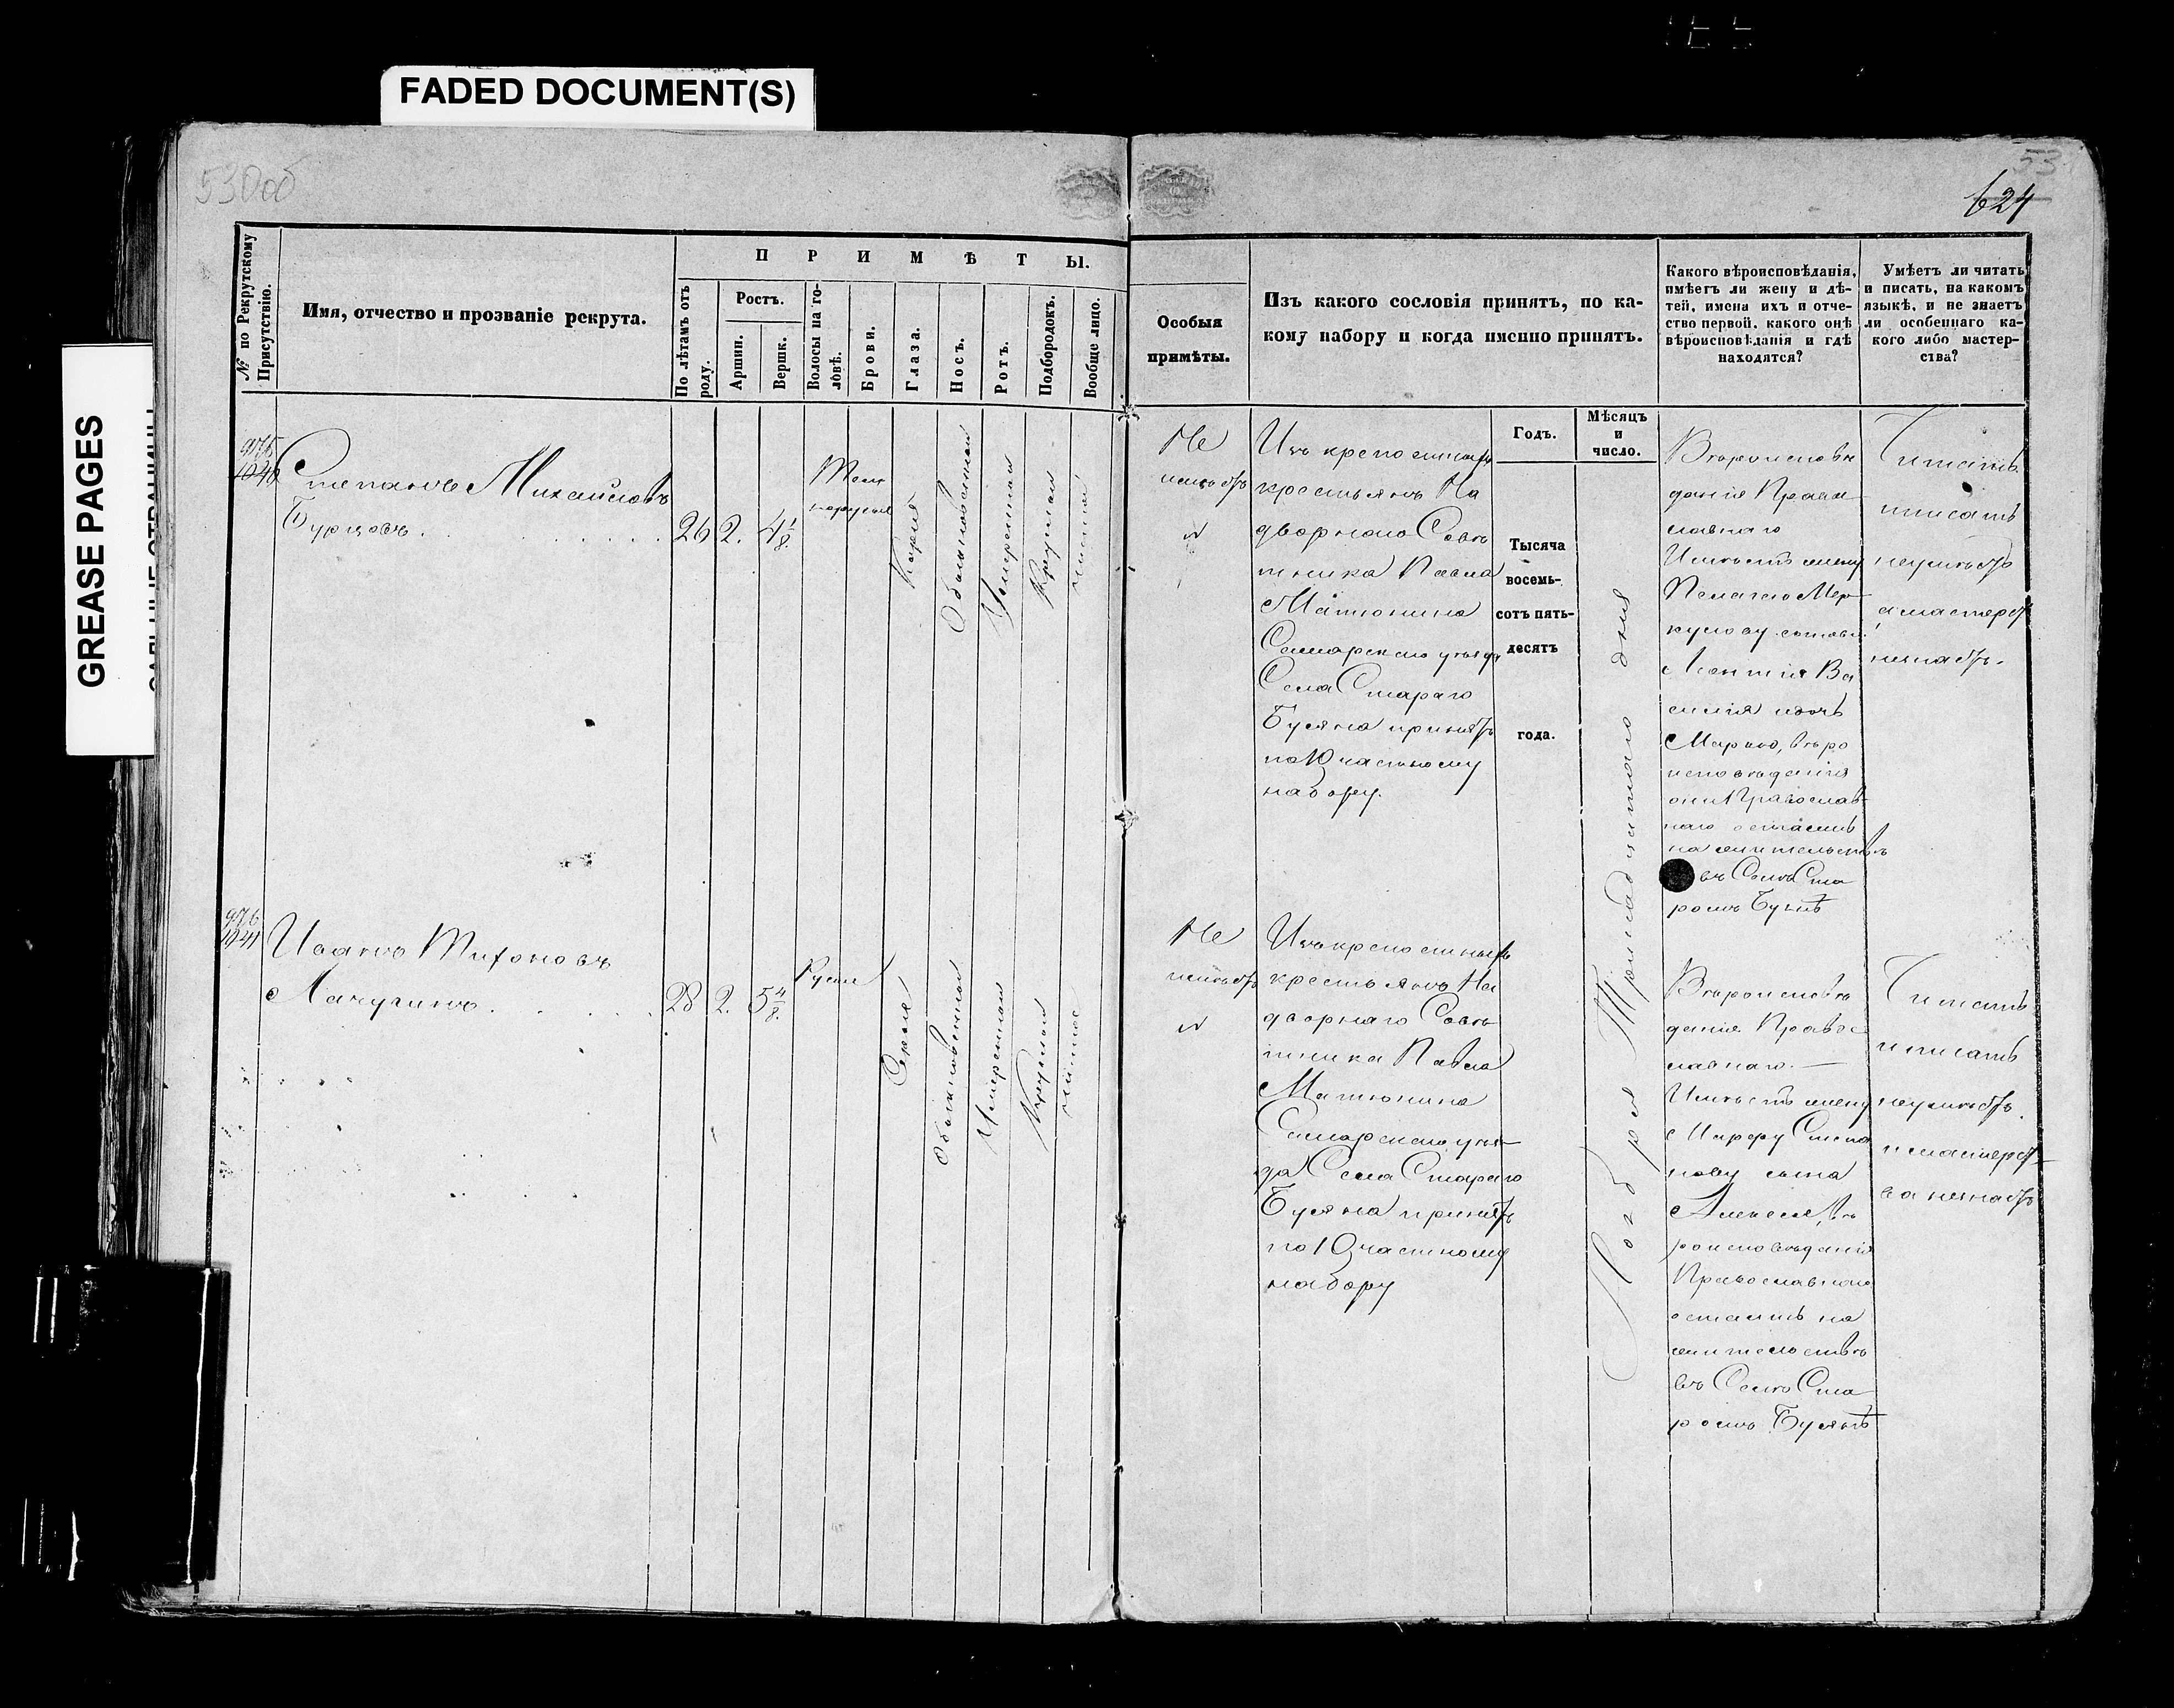 FADED DOCUMENT(S)
GREASE PAGES
530об
53
624
№ по Рекрутскому Присутствію.
Имя, отчество и прозваніе рекрута.
ПРИМѢТЫ.
По лѣтамъ отъ роду.
Ростъ.
Аршин.
Вершк.
Волосы на головѣ.
Брови.
Глаза.
Носъ.
Ротъ.
Подбородокъ.
Вообще лицо.
Особыя
примѣты.
Изъ какого сословія принятъ, по ка-
кому набору и когда именно принятъ.
Какого вѣроисповѣданія,
имѣетъ ли жену и дѣ-
тей, имена ихъ и отче-
ство первой, какого онѣ
вѣроисповѣданія и гдѣ
находятся?
Умѣетъ ли читать
и писать, на какомъ
языкѣ, и не знаетъ
ли особеннаго ка-
кого либо мастер-
ства?
Годъ.
Мѣсяцъ
и
число.
975
1040
Степанъ Михайловъ
Бурцовъ
26
2.
4 1/8.
Темнорусые
Карія
Обыкновенной
Умеренной
Круглой
чистое
Не
имѣетъ
Изъ крепостныхъ
крестьянъ На
дворнаго Совѣ
тника Павла
Матюнина
Самарскаго уѣзда
Села Стараго
Буяна принятъ
по 10 частному
набору.
Тысяча
восемь-
сотъ пять-
десятъ
года.
Ногября Тринадцатаго дня
Вѣроисповѣ
данія Право
славнаго
Имѣетъ жену
Пелагею Мер
кулову сыновей
Леонтія Ва
силія дочь
Марью, вѣро
исповѣданія
они Православ-
наго остались
на жительствѣ
въ Селѣ Ста
ромъ Буянѣ
Читать
писать
неумѣетъ
а мастерст
незнаетъ.
976
1041
Иванъ Тихоновъ
Лачугинъ
28
2.
5 4/8.
Русые
Серые
Обыкновенной
Умеренной
Круглой
чистое
Не
имѣетъ
Изъ крепостныхъ
крестьянъ На
дворнаго Совѣ
тника Павла
Матюнина
Самарскаго уѣз-
да Села Стараго
Буяна принятъ
по 10 частному
набору
Вѣроисповѣ
данія Правос
лавнаго.
Имѣетъ жену
Марфу Степа
нову сына
Алексея, вѣ
роисповѣданія
Православнаго
остались на
жительствѣ
въ Селѣ Ста
ромъ Буянѣ
Читать
и писать
неумѣетъ.
и мастерст
ва незнаетъ